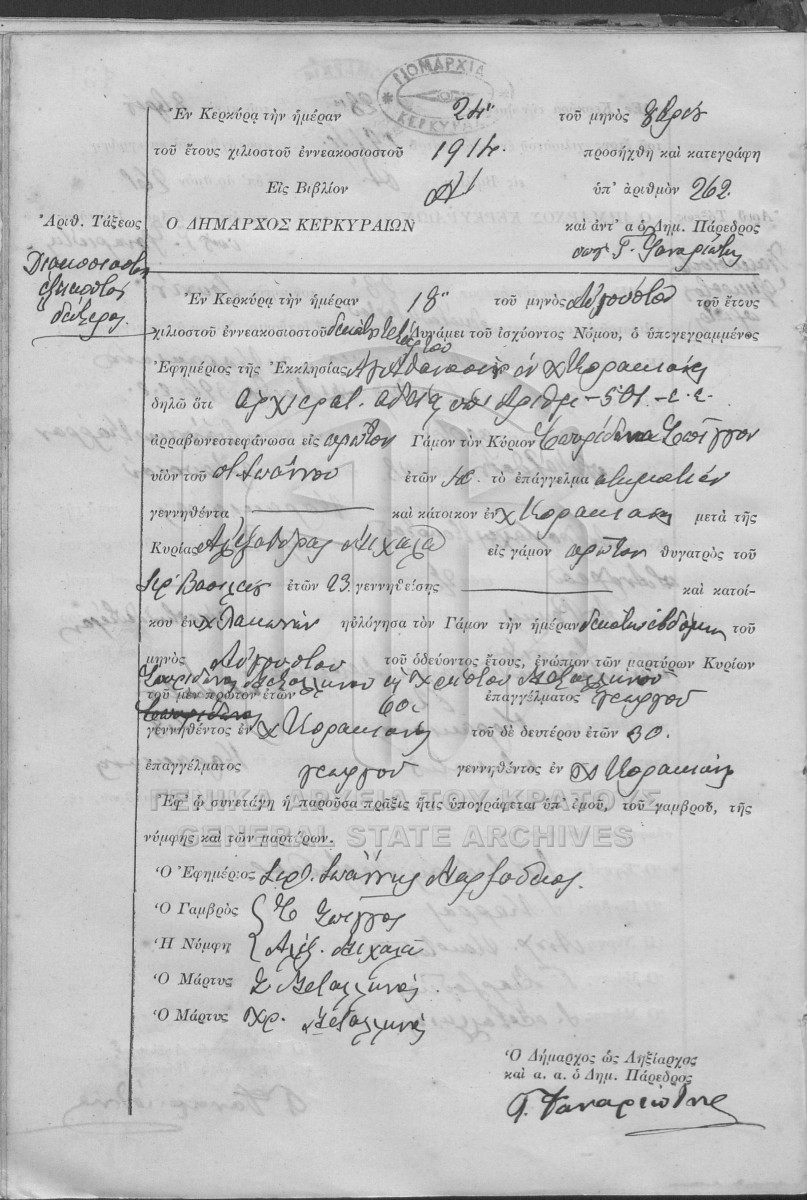 ΝΟΜΑΡΧΙΑ
ΚΕΡΚΥΡΑΣ
Ἐν Κερκύρᾳ τὴν ἡμέραν 24ην τοῦ μηνὸς
τοῦ ἔτους χιλιοστοῦ ἐννεακοσιοστοῦ 1914. προσήχθη καὶ κατεγράφη
Εἰς Βιβλίον Α' ὑπ' ἀριθμὸν 262.
Ἀριθ. Τάξεως Ο ΔΗΜΑΡΧΟΣ ΚΕΡΚΥΡΑΙΩΝ καὶ ἀντ' α ὁ Δημ. Πάρεδρος
Γ. Φαναριώτης
Διακοσιοστὸν
ἑξηκοστὸν
δεύτερον
Ἐν Κερκύρᾳ τὴν ἡμέραν 18ην τοῦ μηνὸς Αὐγούστου τοῦ ἔτους
χιλιοστοῦ ἐννεακοσιοστοῦ δεκάτου τετάρτου Δυνάμει τοῦ ἰσχύοντος Νόμου, ὁ ὑπογεγραμμένος
Ἐφημέριος τῆς Ἐκκλησίας Ἁγ. Ἀθανασίου ἐν χ Κορακιάνῃ
δηλῶ ὅτι ἀρχιερατ. ἀδείᾳ ὑπ' ἀριθμ - 501 - ε. ε.
ἀρραβώνεστεφάνωσα εἰς πρῶτον Γάμον τὸν Κύριον Σπυρίδωνα Σπίγγον
υἱὸν τοῦ Ἰωάννου ἐτῶν τὸ ἐπάγγελμα κτηματίαν
γεννηθέντα καὶ κάτοικον ἐν χ Κορακιάνῃ μετὰ τῆς
Κυρίας Ἀλεξάνδρας Μιχαλᾶ εἰς γάμον πρῶτον θυγατρὸς τοῦ
Ἱερ. Βασιλείου ἐτῶν 23 γεννηθείσης καὶ κατοί-
κου ἐν χ Λακώνων ηὐλόγησα τὸν Γάμον τὴν ἡμέραν δεκάτην ἑβδόμην τοῦ
μηνὸς Αὐγούστου τοῦ ὁδεύοντος ἔτους, ἐνώπιον τῶν μαρτύρων Κυρίων
Σπυρίδωνος Μεταλληνοῦ κ Χρήστου Μεταλληνοῦ
τοῦ μὲν πρώτου ἐτῶν ἐπαγγέλματος γεωργοῦ
γεννηθέντος ἐν χ Κορακιάνῃ τοῦ δὲ δευτέρου ἐτῶν 30.
ἐπαγγέλματος γεωργοῦ γεννηθέντος ἐν χ Κορακιάνῃ
ΓΕΝΙΚΑ ΑΡΧΕΙΑ ΤΟΥ ΚΡΑΤΟΥΣ
Ἐφ' ᾧ συνετάγη ἡ παροῦσα πρᾶξις ἥτις ὑπογράφεται ὑπ' ἐμοῦ, τοῦ γαμβροῦ, τῆς
GENERAL STATE ARCHIVES
νύμφης καὶ τῶν μαρτύρων.
Ὁ Ἐφημέριος Ἱερ. Ἰωάννης
Ὁ Γαμβρὸς Σ Σπίγγος
Ἡ Νύμφη Ἀλεξ. Μιχαλᾶ
Ὁ Μάρτυς Σ Μεταλληνός
Ὁ Μάρτυς Χρ. Μεταλληνός
Ὁ Δήμαρχος ὡς Ληξίαρχος
καὶ α. α. ὁ Δημ. Πάρεδρος
Γ. Φαναριώτης